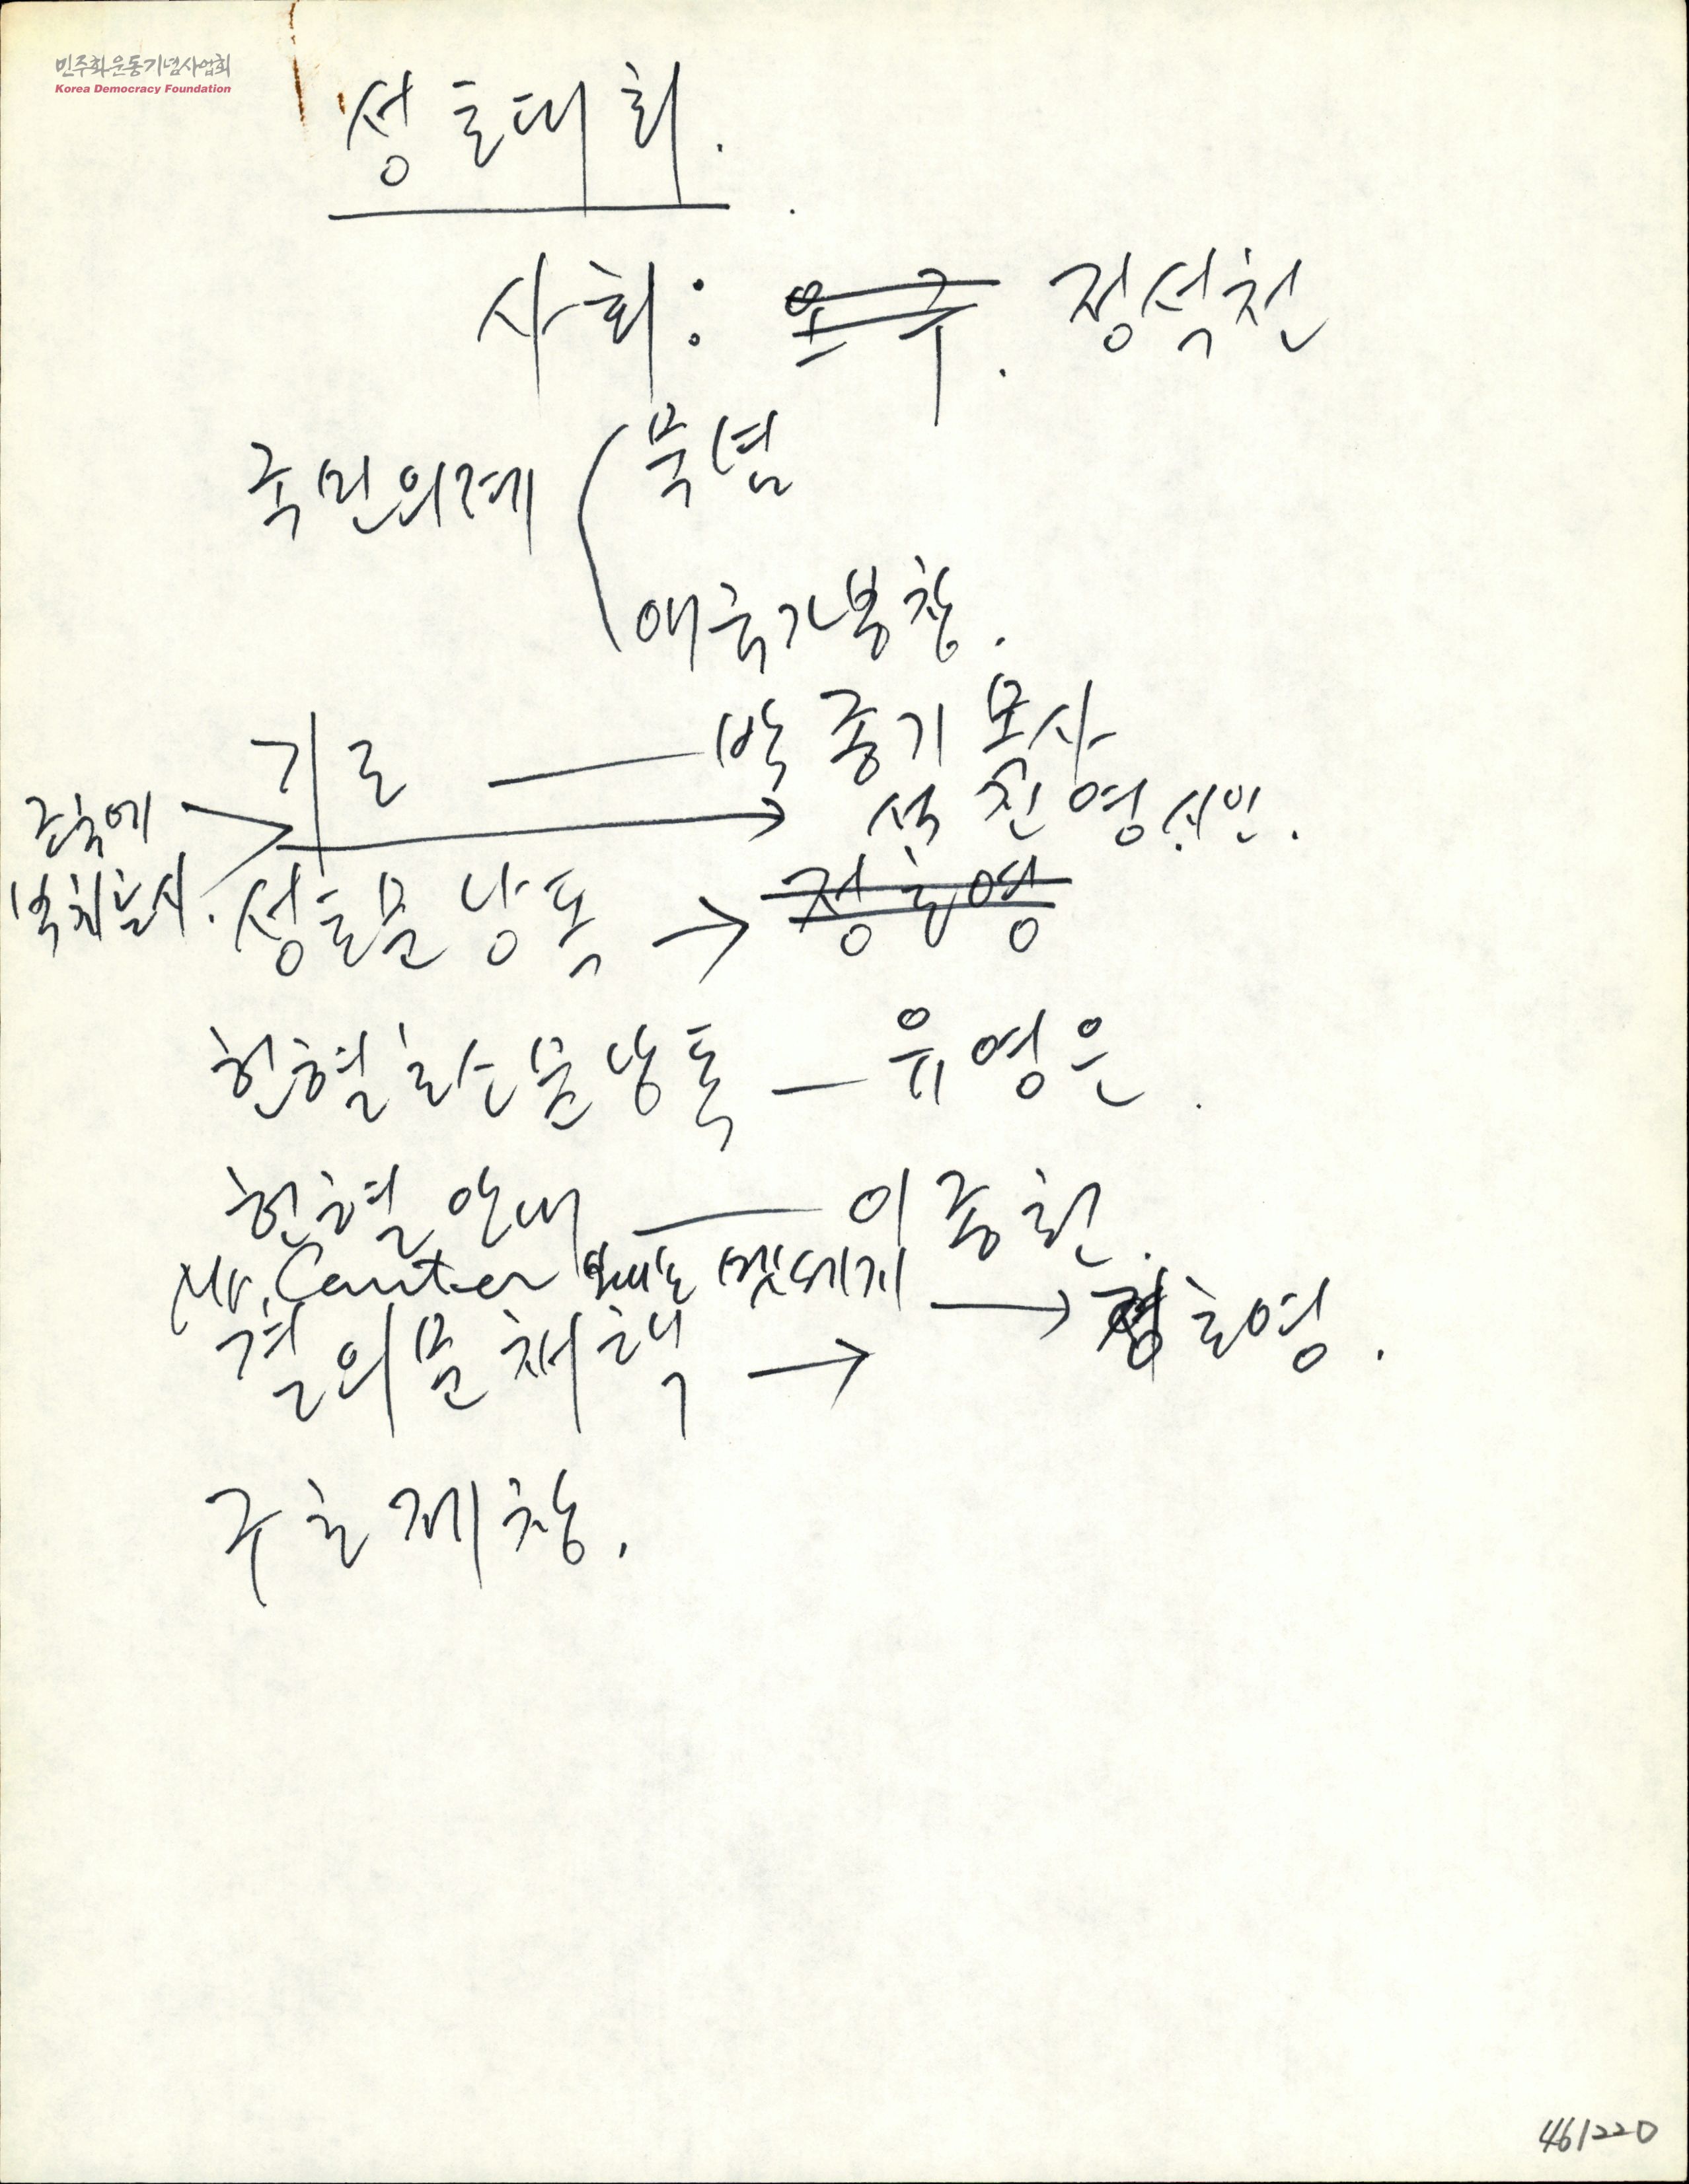 민주화운동기념사업회
Korea Democracy Foundation
성토대회.
사회: 정석천
국민의례 ( 묵념
애국가봉창.
기도 — 박종기 목사
조국에 바치는 시. → 석진영 시인.
성토문 낭독 → 정호영
헌혈 문 낭독 — 유영은.
헌혈 안내 — 이종헌.
Mr. Carter 에게 → 정호영.
결의문 채택 →
구호 제창.
461220